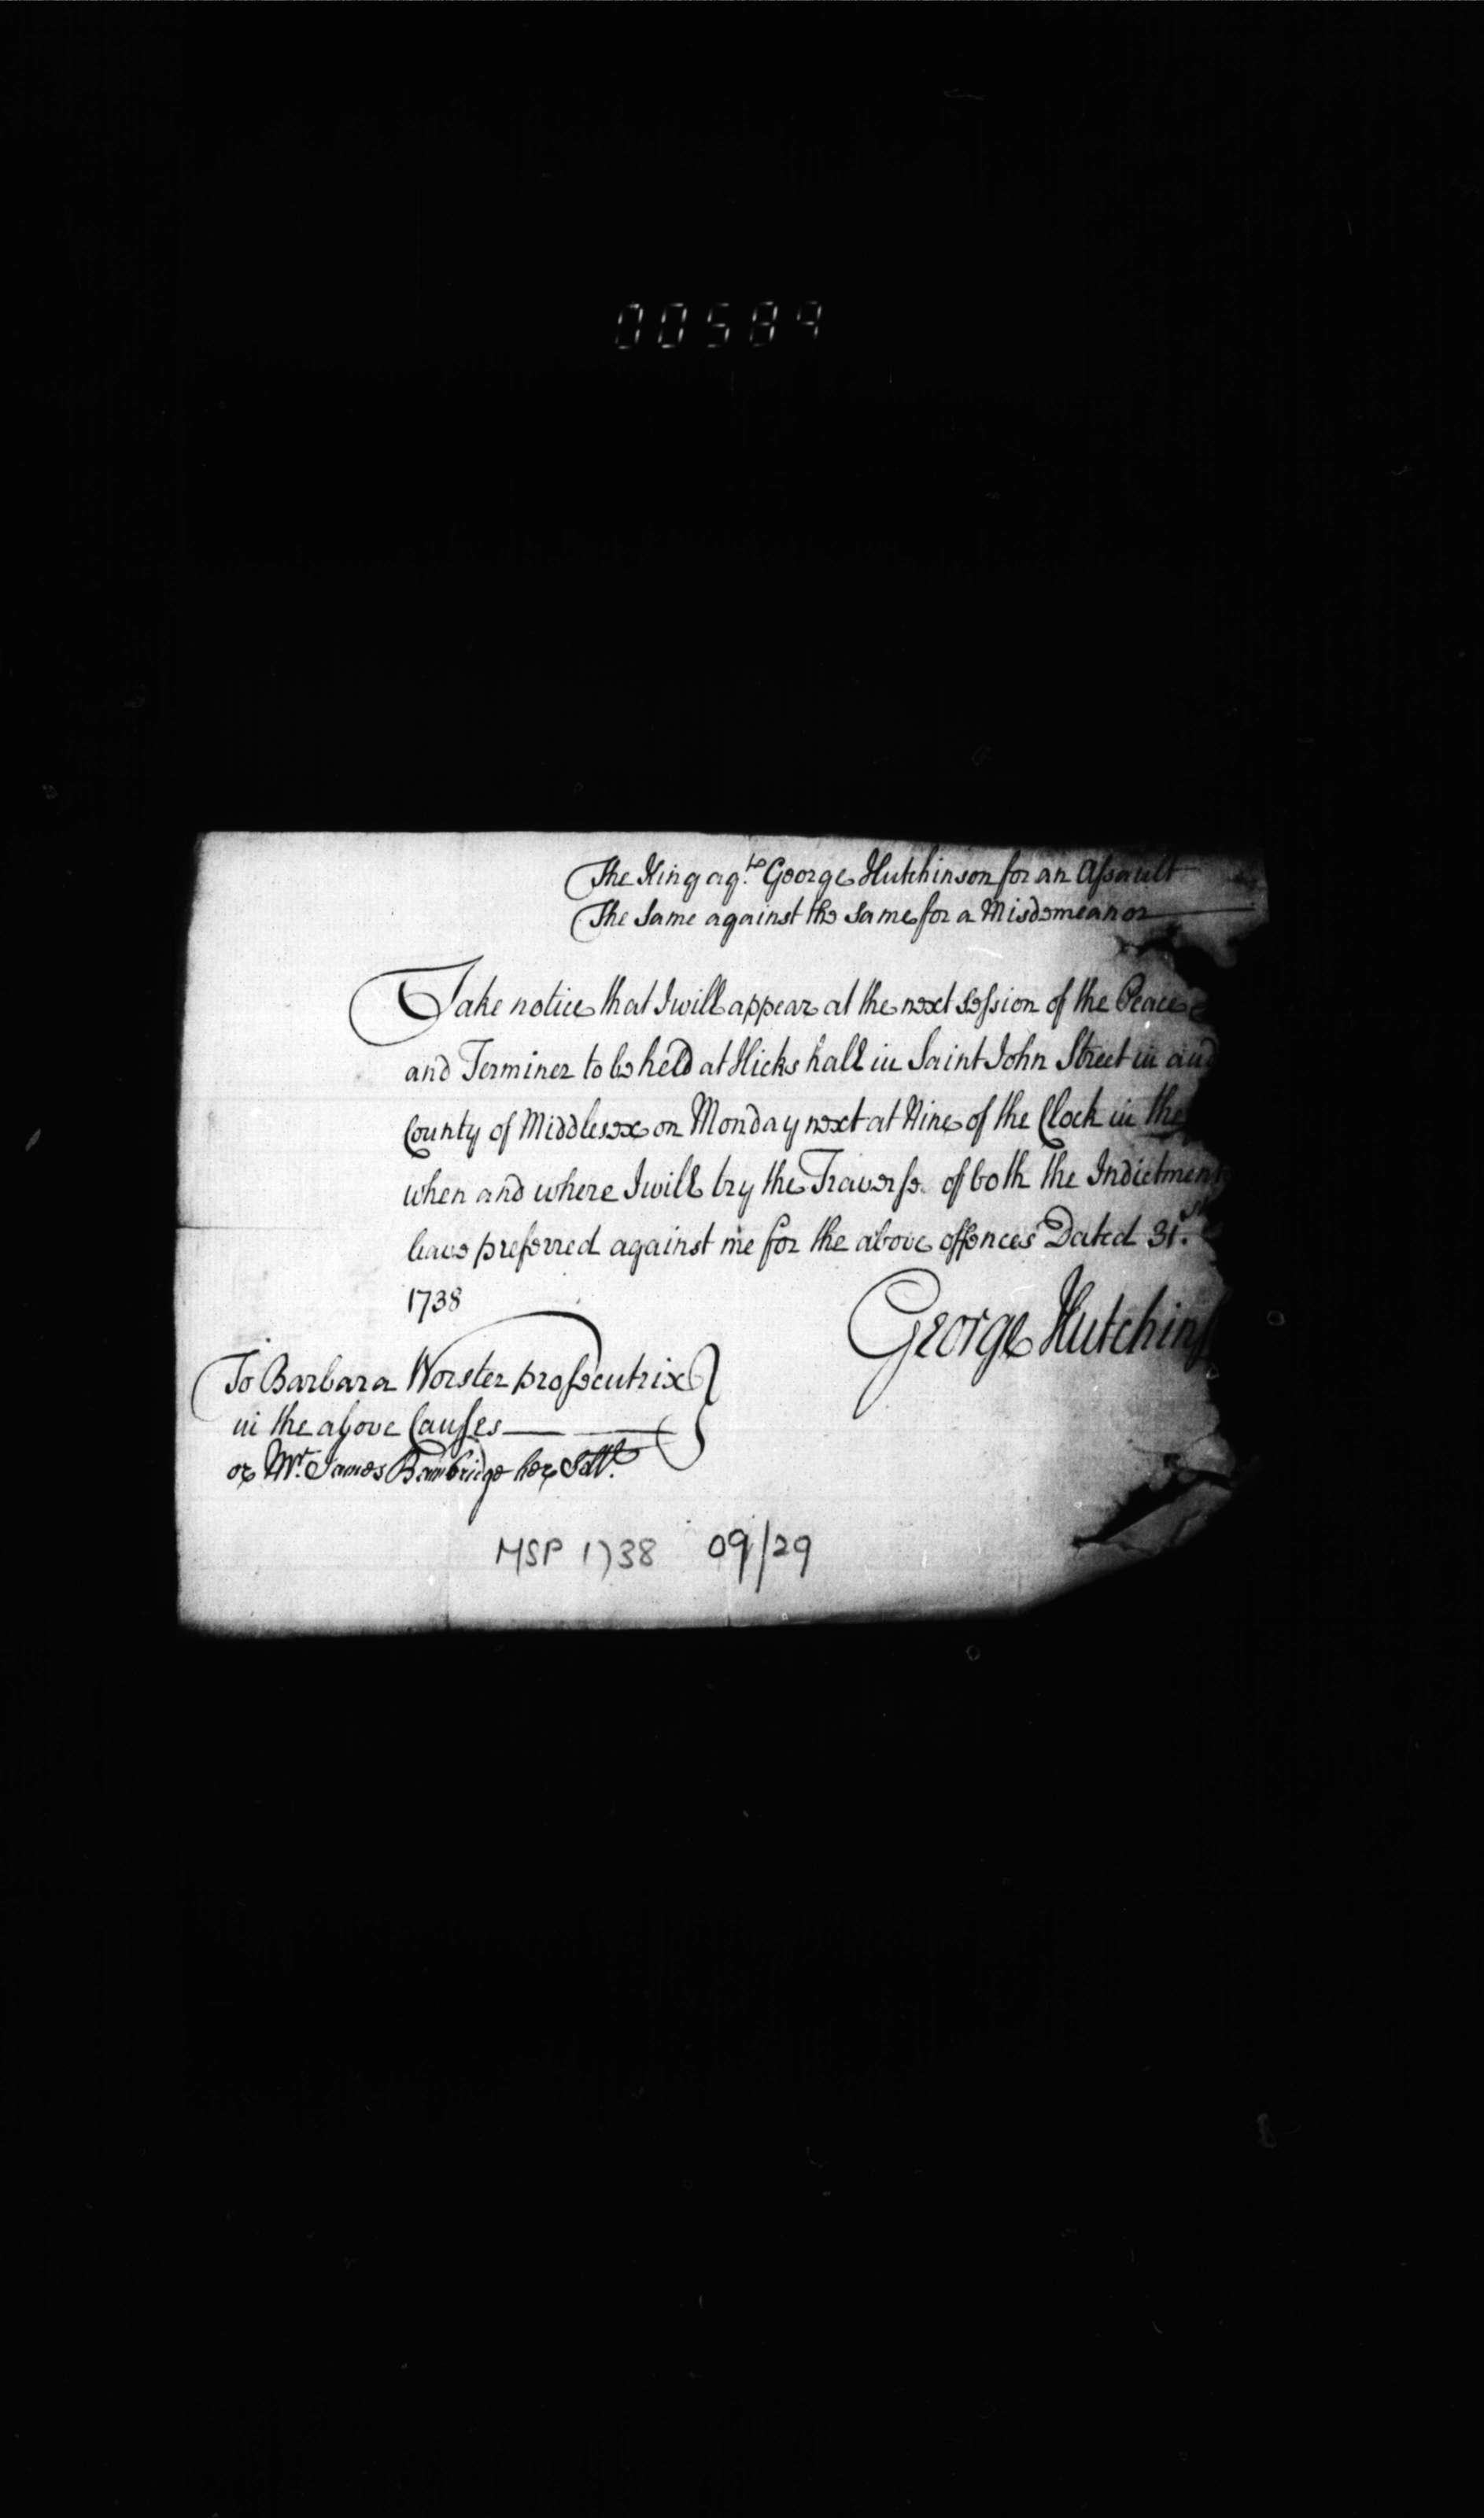 00589
The King agt. George Hutchinson for an Assault
The Same against the Same for a Misdemeanor
Take notice that I will appear at the next Session of the Peace
and Terminer to be held at Hicks hall in Saint John Street in and
County of Middlesex on Monday next at Nine of the Clock in the
when and where I will try the Traverse of both the Indictment
leave preferred against me for the above offences Dated 31.st
1738
George Hutchins
To Barbara Worster prosecutrix
in the above Causes
or Mr. James Bambridge her Sollr.
MSP 1738 09/29